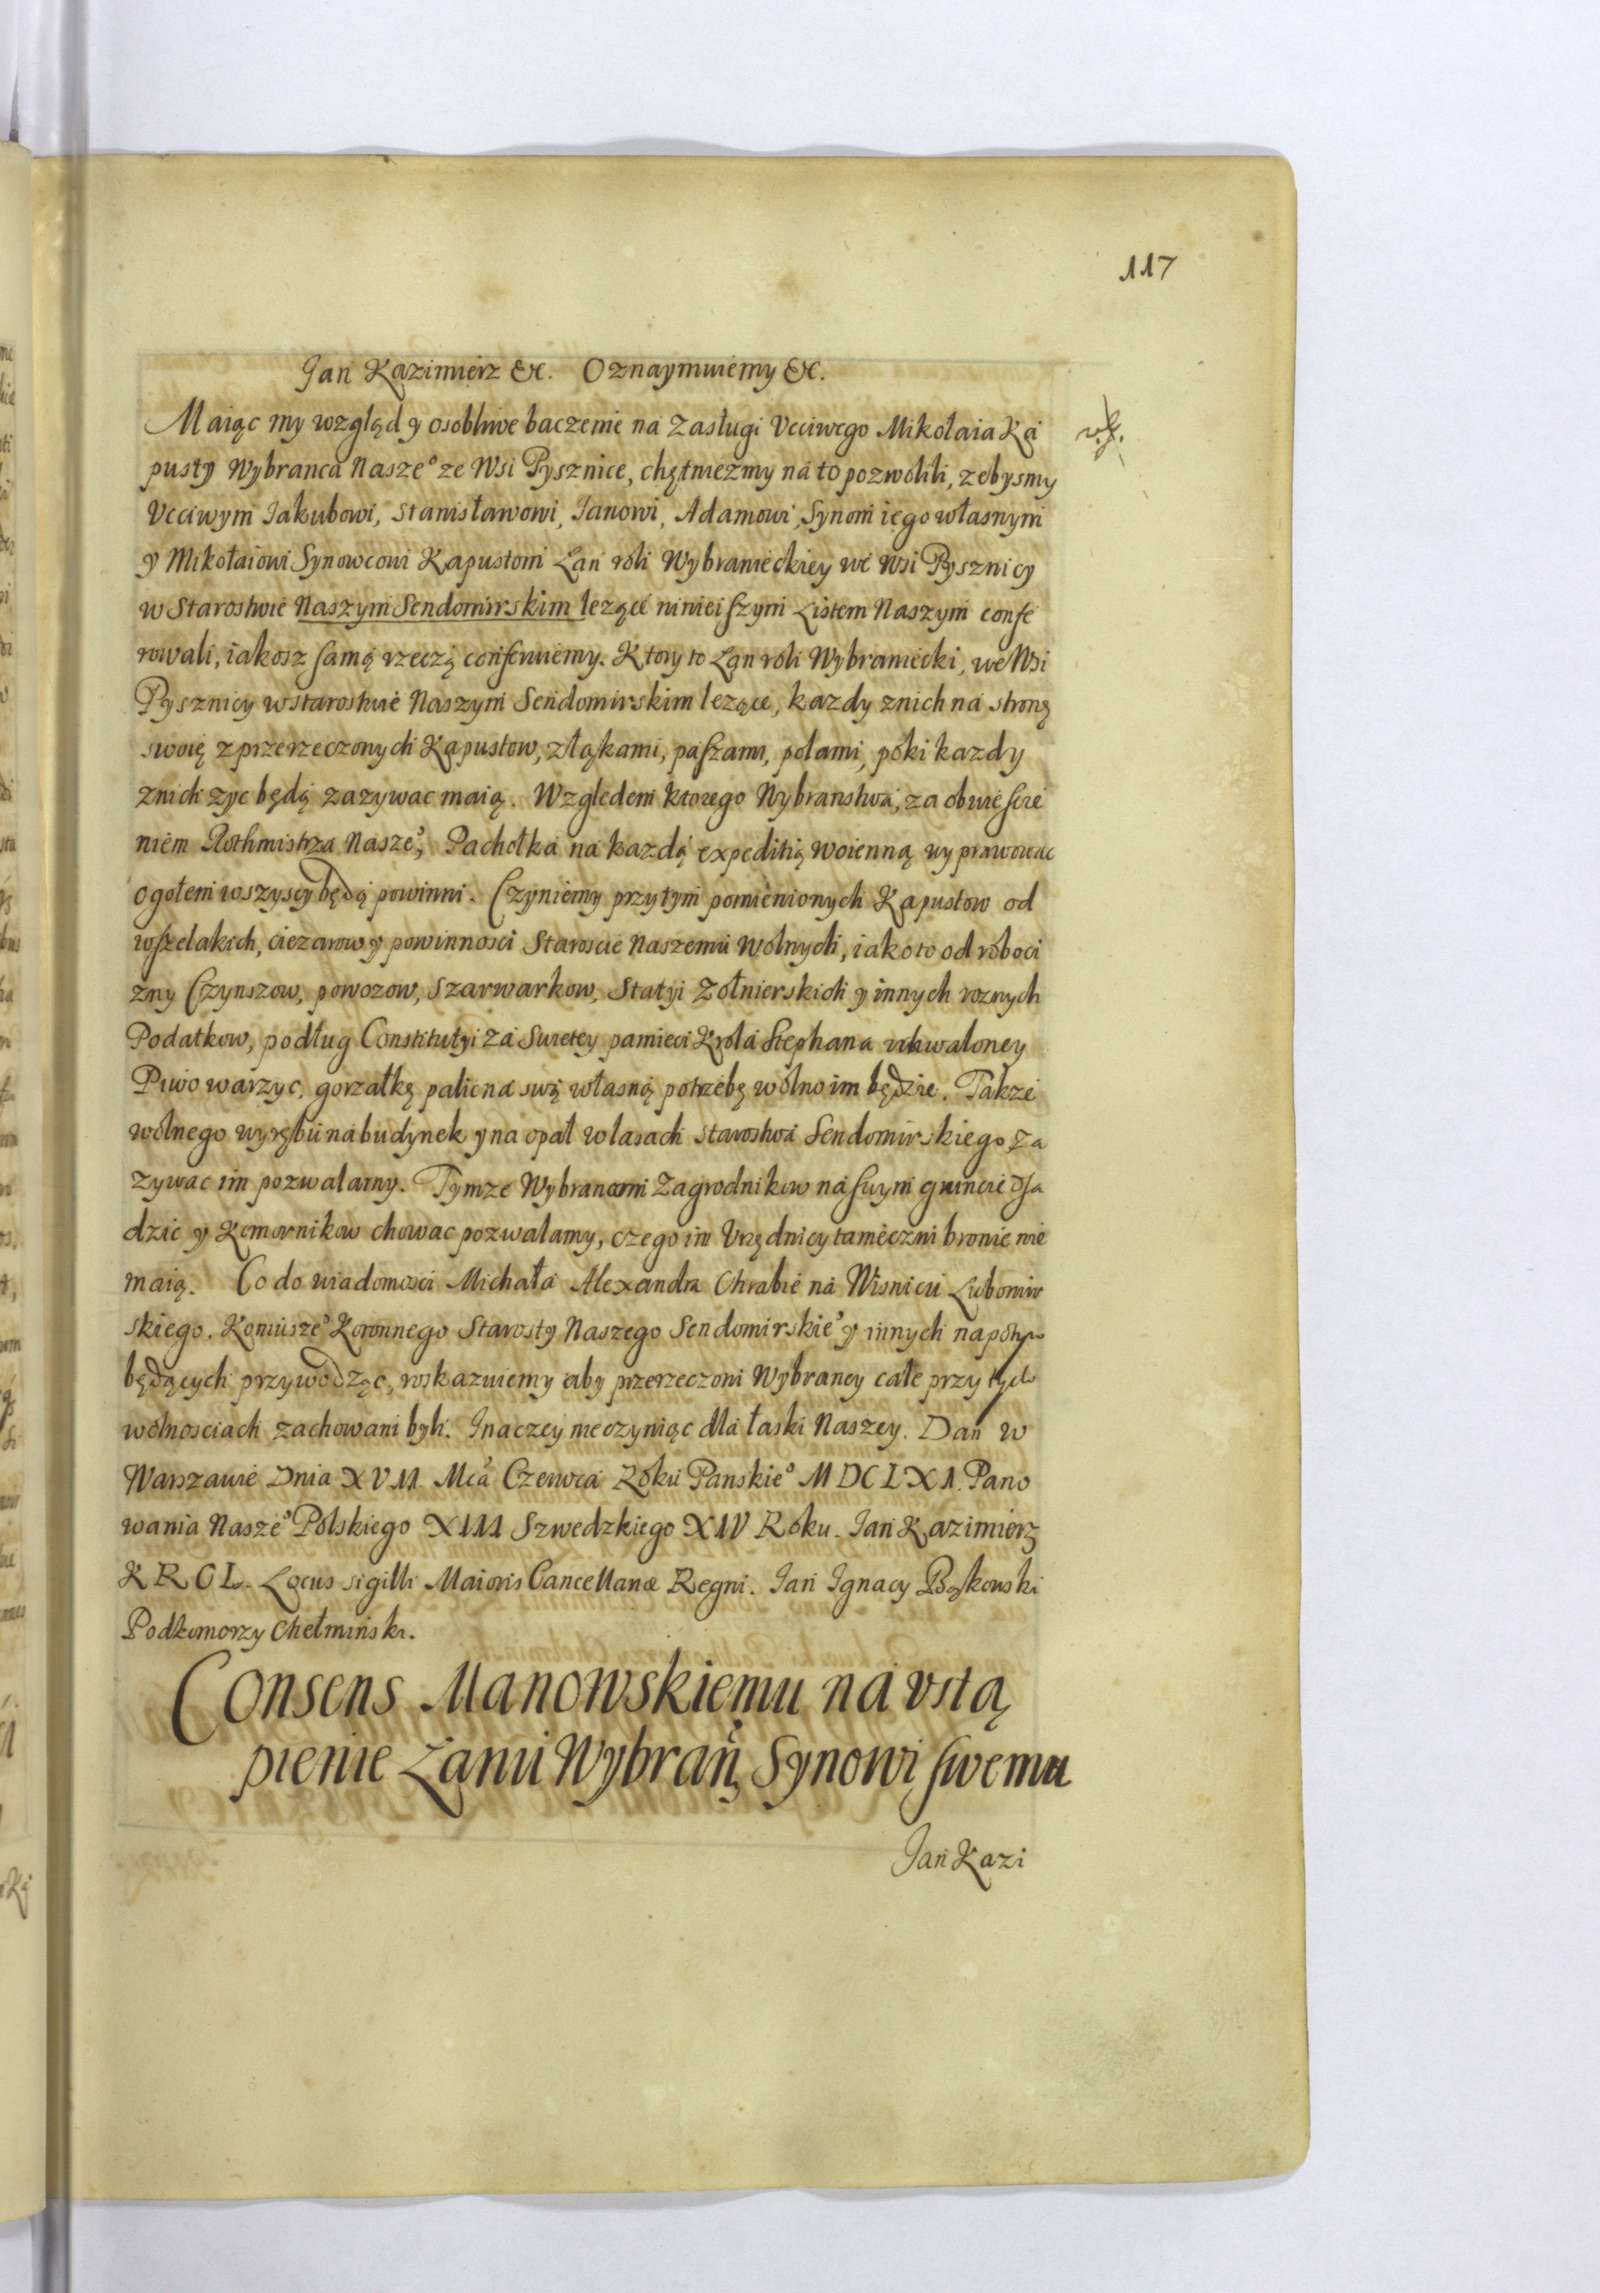 117
Jan Kazimierz &c. Oznaymuiemy &c.
Maiąc my wzgląd y osobliwe baczenie na zasługi Vcciwego Mikołaia Ka
pusty Wybranca Nasze° ze Wsi Pysznice, chętniezmy na to pozwolili, zebysmy
Vcciwym Iakubowi, Stanisławowi, Ianowi, Adamowi, Synom iego własnym
y Mikołaiowi Synowcowi Kapustom Łan roli Wybranieckiey we Wsi Pysznicy
w Starostwie Naszym Sendomirskim lezące ninieiszym Listem Naszym confe
rowali, iakosz samą rzeczą conferuiemy. Ktory to Łan roli Wybraniecki, we Wsi
Pysznicy w starostwie Naszym Sendomirskim lezące, kazdy z nich na stronę
swoię z przerzeczonych Kapustow, z łąkami, paszami, polami, poki kazdy
z nich zyc będą zazywac maią. Względem ktorego Wybranstwa, za obwiesce
niem Rothmistrza Nasze°, Pachołka na kazdą expeditią woienną wyprawowac
ogołem wszyscy będą powinni. Czyniemy przytym pomienionych Kapustow od
wszelakich, ciezarow y powinnosci Staroscie Naszemu wolnych, iako to od roboci
zny Czynszow, powozow, Szarwarkow, Statyi Zołnierskich y innych roznych
Podatkow, podług Constitutyi za Swietey pamieci Krola Stephana uchwaloney
Piwo warzyc, gorzałkę palic na swą własną potrzebę wolno im będzie. Takze
wolnego wyrębu na budynek y na opał w lasach starostwa Sendomirskiego, za
zywac im pozwalamy. Tymze Wybrancom Zagrodnikow na swym gruncie osa
dzic y Komornikow chowac pozwalamy, czego im Vrzędnicy tameczni bronic nie
maią. Co do wiadomosci Michała Alexandra Chrabie na Wisniczu Lubomir
skiego, Koniusze° Koronnego Starosty Naszego Sendomirskie° y innych napotym
będących przywodząc, roskazuiemy aby przerzeczoni Wybrancy cale przy tych
wolnosciach zachowani byli. Inaczey nie czyniąc dla łaski Naszey. Dan w
Warszawie Dnia XVII. Mca Czerwca Roku Panskie° MDCLXI. Pano
wania Nasze° Polskiego XIII Szwedzkiego XIV Roku. Jan Kazimierz
KROL. Locus sigilli Maioris Cancellariæ Regni. Jan Ignacy Bąkowski
Podkomorzy Chełminski.
Consens Manowskiemu na vstą
pienie Łanu Wybrań, Synowi swemu
Jan Kazi